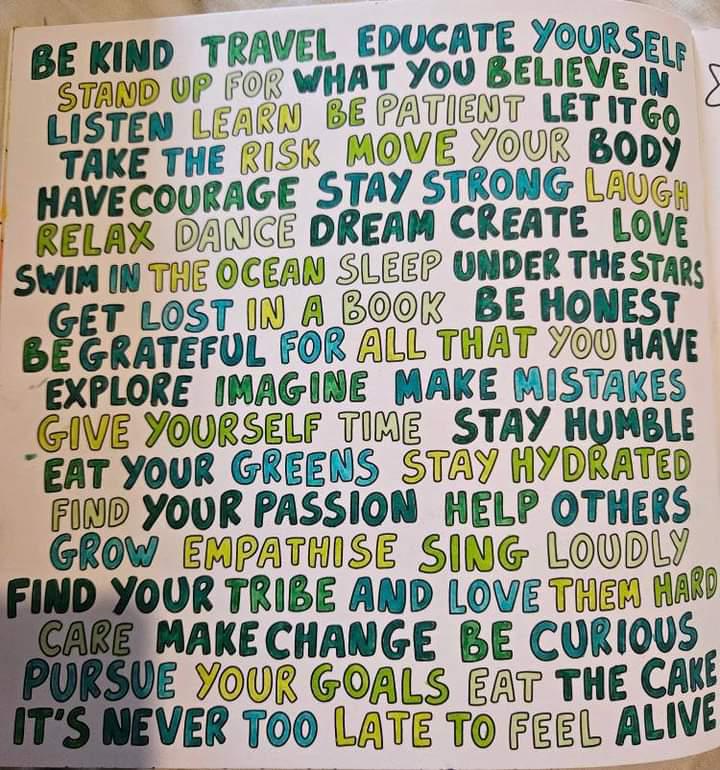 BE KIND TRAVEL EDUCATE YOURSELF
STAND UP FOR WHAT YOU BELIEVE IN
LISTEN LEARN BE PATIENT LET IT GO
TAKE THE RISK MOVE YOUR BODY
HAVE COURAGE STAY STRONG LAUGH
RELAX DANCE DREAM CREATE LOVE
SWIM IN THE OCEAN SLEEP UNDER THE STARS
GET LOST IN A BOOK BE HONEST
BE GRATEFUL FOR ALL THAT YOU HAVE
EXPLORE IMAGINE MAKE MISTAKES
GIVE YOURSELF TIME STAY HUMBLE
EAT YOUR GREENS STAY HYDRATED
FIND YOUR PASSION HELP OTHERS
GROW EMPATHISE SING LOUDLY
FIND YOUR TRIBE AND LOVE THEM HARD
CARE MAKE CHANGE BE CURIOUS
PURSUE YOUR GOALS EAT THE CAKE
IT'S NEVER TOO LATE TO FEEL ALIVE